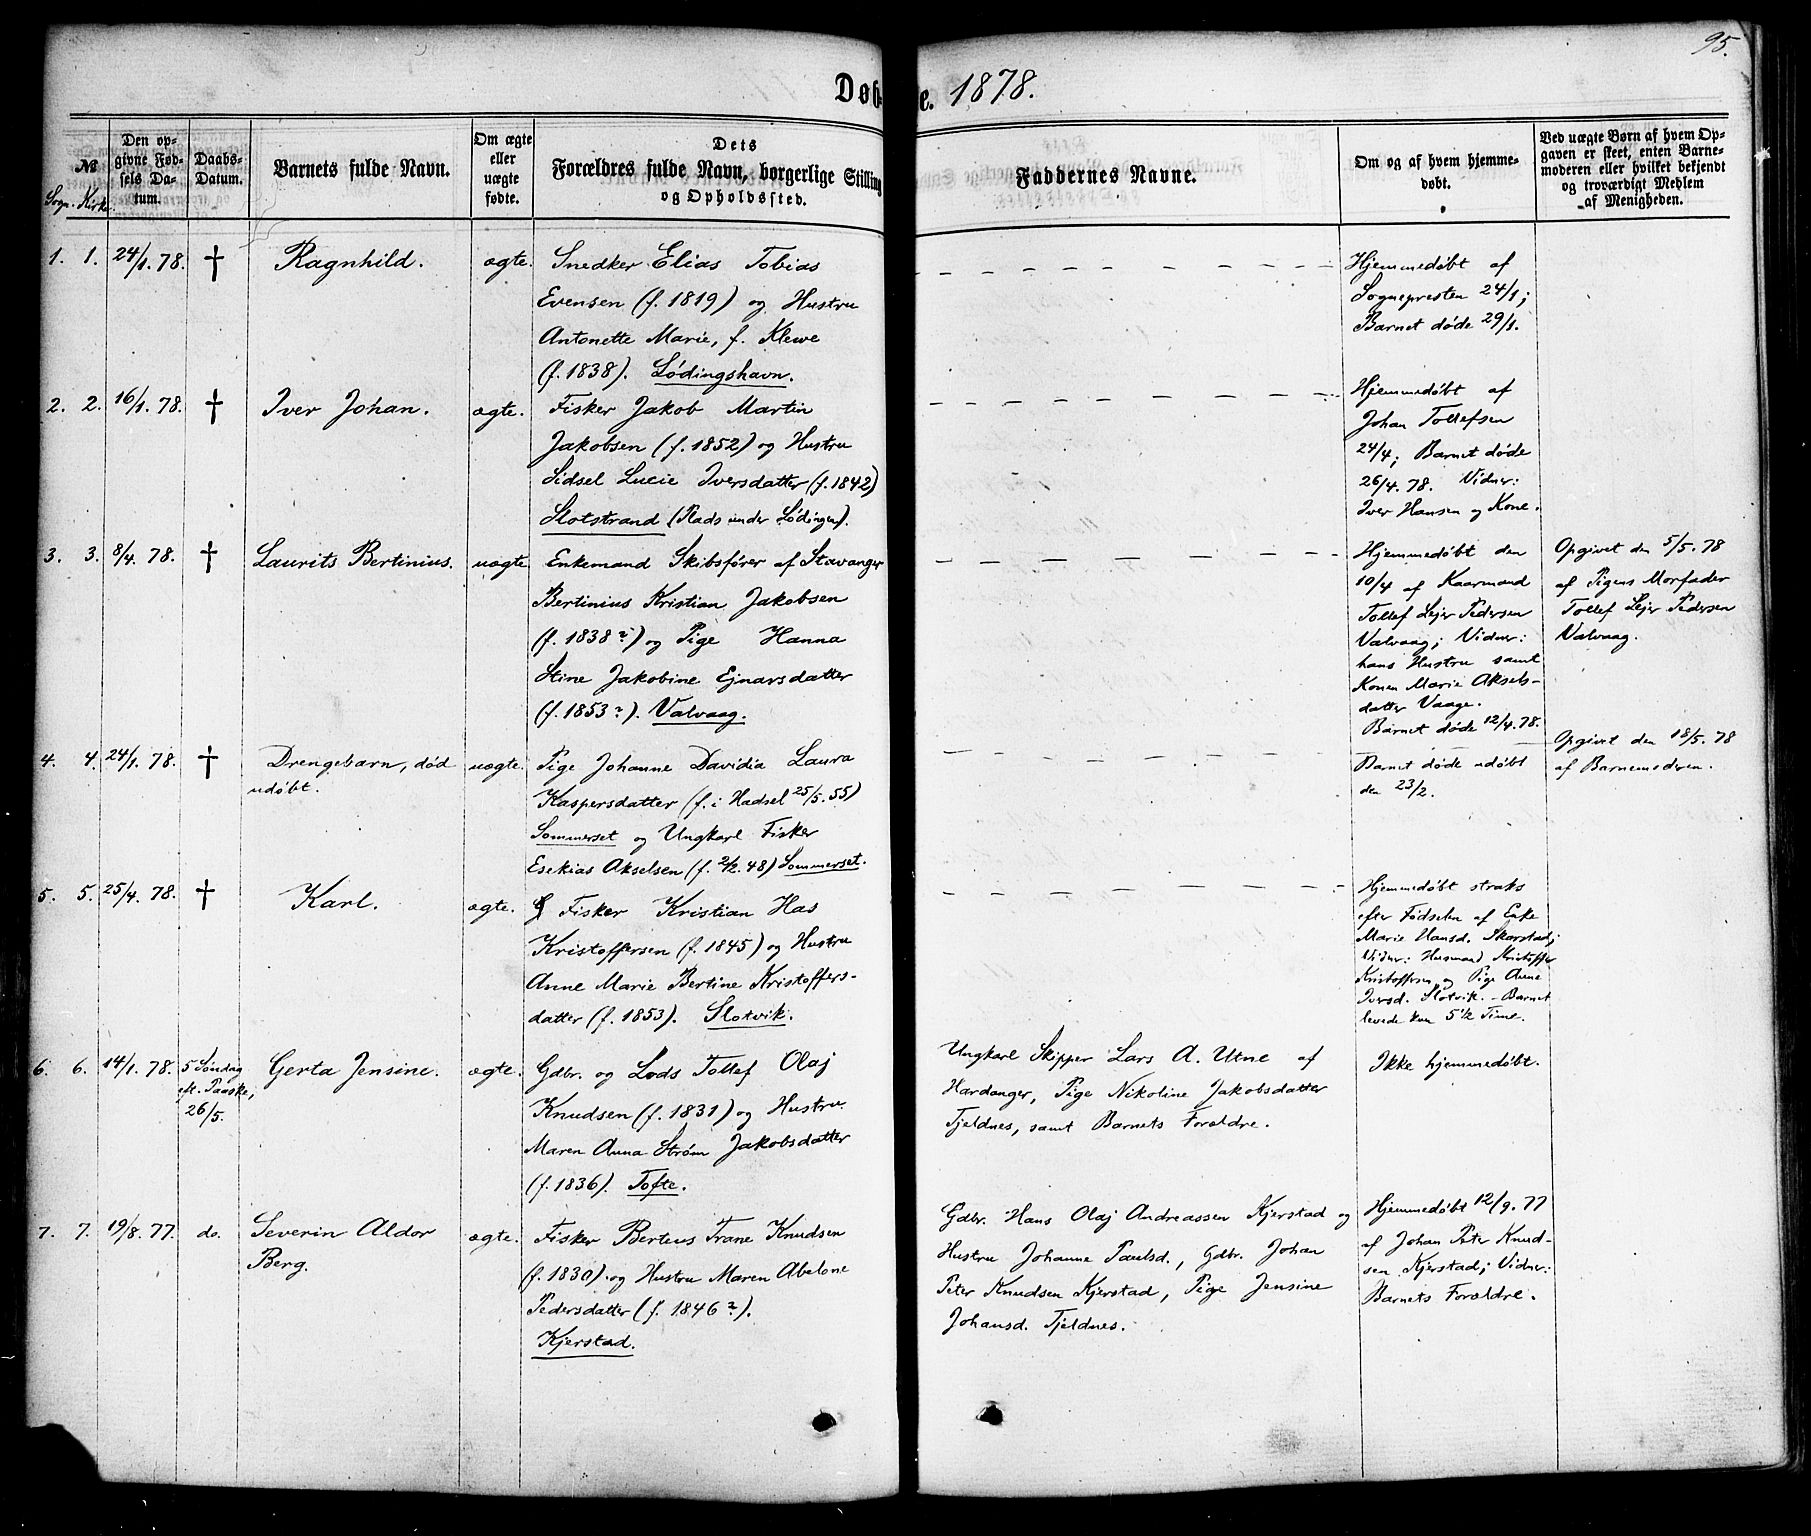 95.
Døb e. 1878.
№
Sogn. Kirke.
Den op-
givne Fød-
sels Da-
tum.
Daabs-
Datum.
Barnets fulde Navn.
Om ægte
eller
uægte
fødte.
Dets
Forældres fulde Navn, borgerlige Stilling
og Opholdssted.
Faddernes Navne.
Om og af hvem hjemme-
døbt.
Ved uægte Børn af hvem Op-
gaven er skeet, enten Barne-
moderen eller hvilket bekjendt
og troværdigt Medlem
af Menigheden.
1. 1. 24/1. 78. † Ragnhild. ægte. Snedker Elias Tobias
Evensen (f. 1819) og Hustru
Antonette Marie, f. Klewe
(f. 1838). Lødingshavn.
Hjemmedøbt af
Sognepresten 24/1;
Barnet døde 29/1.
2. 2. 16/1. 78. † Iver Johan. ægte. Fisker Jakob Martin
Jakobsen (f. 1852) og Hustru
Sidsel Lucie Iversdatter (f. 1842)
Slotstrand (Plads under Lødingen).
Hjemmedøbt af
Johan Tollefsen
24/4; Barnet døde
26/4. 78. Vidner:
Iver Hansen og Kone.
3. 3. 8/4. 78. † Laurits Bertinius. uægte Enkemand Skibsfører af Stavanger
Bertinius Kristian Jakobsen
(f. 1838?) og Pige Hanna
Stine Jakobine Ejnarsdatter
(f. 1853?). Valvaag.
Hjemmedøbt den
10/4 af Kaarmand
Tollef Lejer Pedersen
Valvaag; Vidner:
hans Hustru samt
Konen Marie Aksels-
datter Vaage.
Barnet døde 12/4. 78.
Opgivet den 5/5. 78
af Pigens Morfader
Tollef Lejer Pedersen
Valvaag.
4. 4. 24/1. 78. † Drengebarn, død
udøbt.
uægte. Pige Johanne Davidia Laura
Kaspersdatter (f. i Hadsel 25/5. 55)
Sommerset og Ungkarl Fisker
Esekias Akselsen (f. 2/2. 48) Sommerset.
Barnet døde udøbt
den 23/2.
Opgivet den 18/5. 78
af Barnemoderen.
5. 5. 25/4. 78. † Karl. ægte. Fisker Kristian Has
Kristoffersen (f. 1845) og Hustru
Anne Marie Bertine Kristoffers-
datter (f. 1853). Slotvik.
Hjemmedøbt straks
efter Fødselen af Enke
Marie Hansd. Skarstad;
Vidner: Husmand Kristoffer
Kristoffersen og Pige Anne
Iversd. Slotvik. - Barnet
levede kun 5 1/2 Time.
6. 6. 14/1. 78. 5 Søndag
eft. Paaske,
26/5.
Gerta Jensine. ægte. Gdbr. og Lods Tollef Olaj
Knudsen (f. 1831) og Hustru
Maren Anna Strøm Jakobsdatter
(f. 1836). Tofte.
Ungkarl Skipper Lars A. Utne af
Hardanger, Pige Nikoline Jakobsdatter
Tjeldnes, samt Barnets Forældre.
Ikke hjemmedøbt.
7. 7. 19/8. 77. do. Severin Aldor
Berg.
ægte. Fisker Berteus Trane Knudsen
(f. 1830). og Hustru Maren Abelone
Pedersdatter (f. 1846?).
Kjerstad.
Gdbr. Hans Olaj Andreassen Kjerstad og
Hustru Johanne Paulsd., Gdbr. Johan
Peter Knudsen Kjerstad, Pige Jensine
Johansd. Tjeldnes.
Hjemmedøbt 12/9. 77
af Johan Peter Knud-
sen Kjerstad; Vidner:
Barnets Forældre.